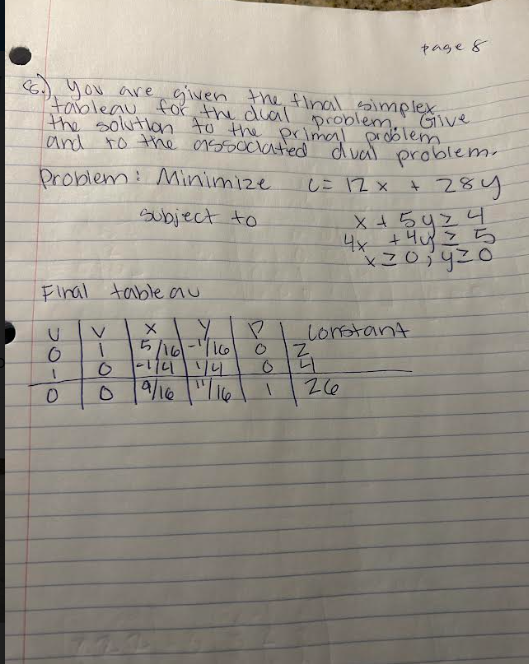 page 8
8.) you are given the final simplex
tableau for the dual problem. Give
the solution to the primal problem
and to the associated dual problem.
Problem: Minimize C = 12x + 28y
subject to x + 5y ≥ 4
4x + 4y ≥ 5
x ≥ 0, y ≥ 0
Final tableau
U V X Y P Constant
0 1 5/16 -1/16 0 2
1 0 -1/4 1/4 0 4
0 0 9/16 11/16 1 26